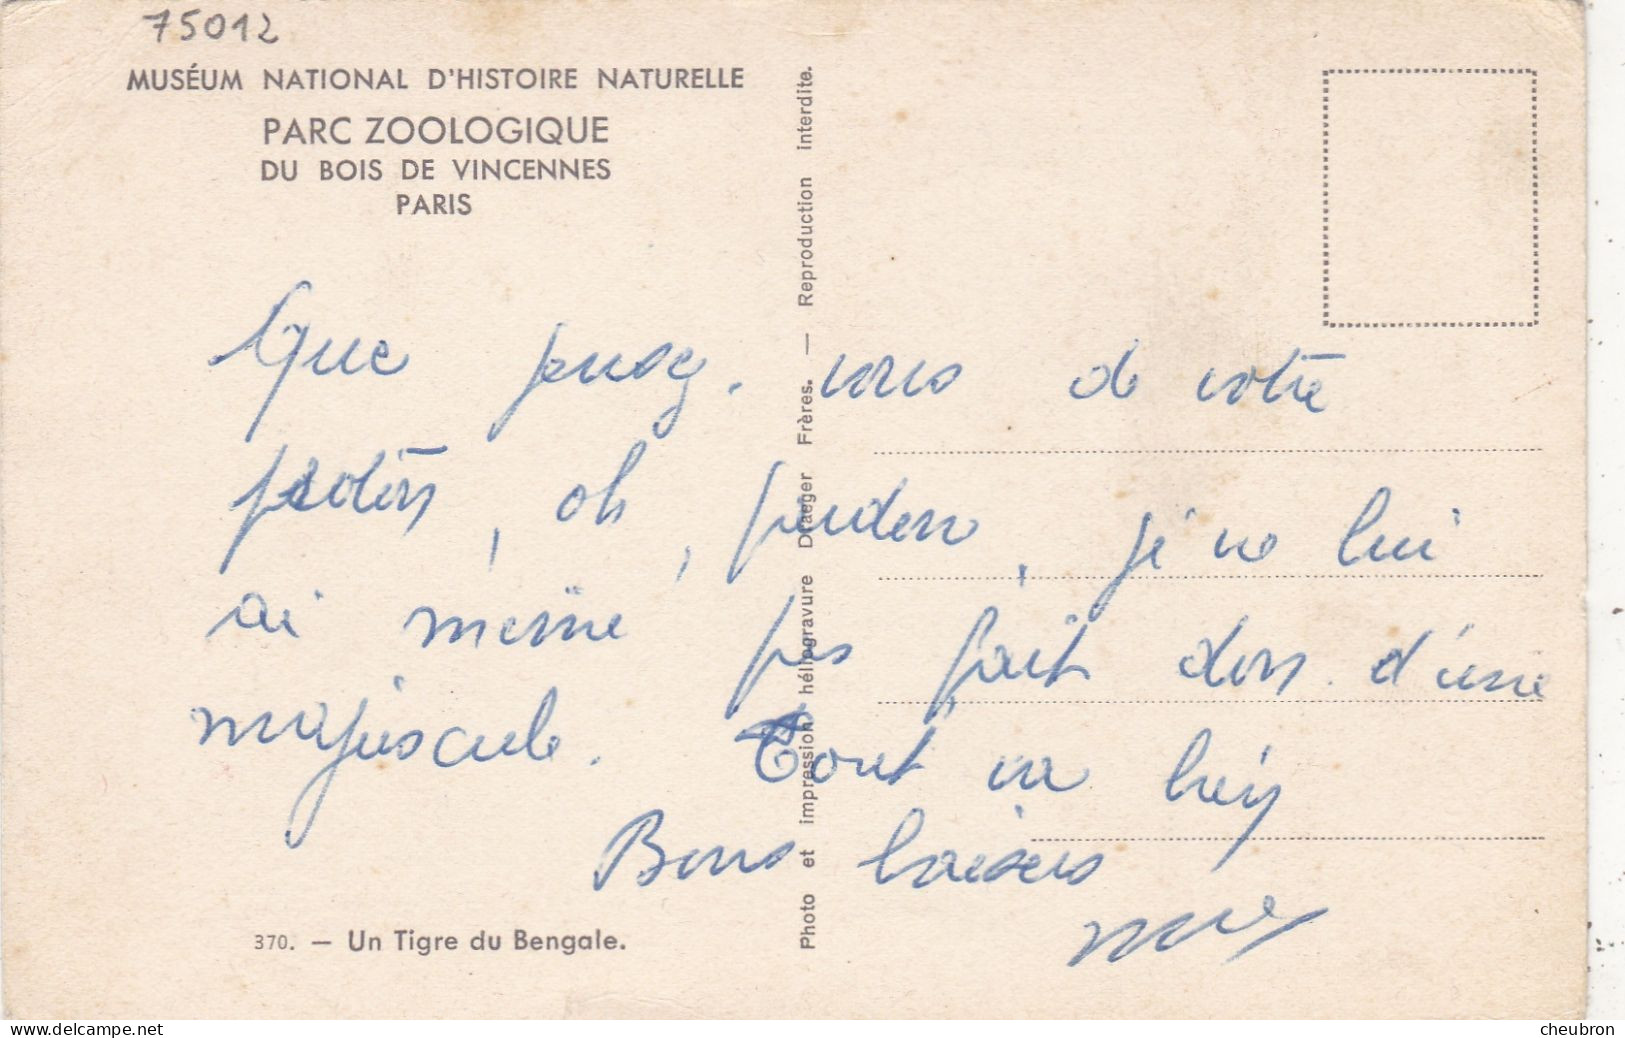 75012
MUSÉUM NATIONAL D'HISTOIRE NATURELLE
PARC ZOOLOGIQUE
DU BOIS DE VINCENNES
PARIS
Que pensez-vous de votre
, oh, pardon, je ne lui
ai même pas fait don d'une
majuscule. Tout va bien
Bons baisers
370. — Un Tigre du Bengale.
Photo et impression héliogravure Draeger Frères. — Reproduction interdite.
www.delcampe.net
cheubron